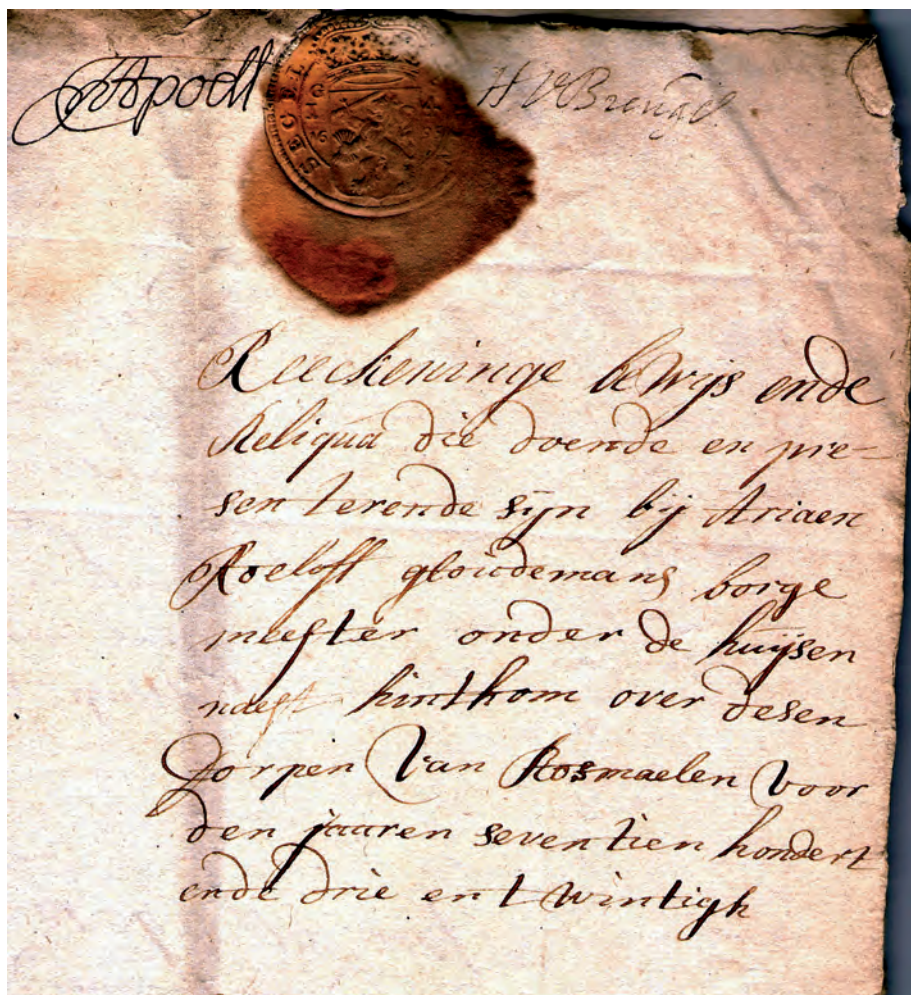 H V Breugel
SEGEL
Reeckeninge bewijs ende
Reliqua die doende en pre-
senterende sijn bij Ariaen
Roeloff gloudemans borge
meester onder de huijsen
naest hinthom over desen
Dorpen van Rosmaelen voor
den jaaren seventien hondert
ende drie en twintigh